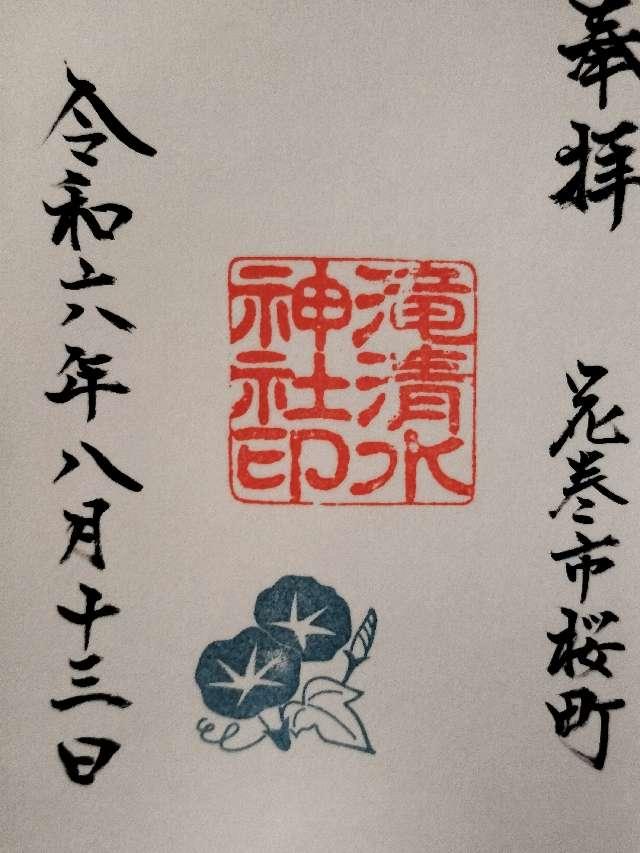 奉拝
花巻市桜町
滝清水
神社印
令和六年八月十三日